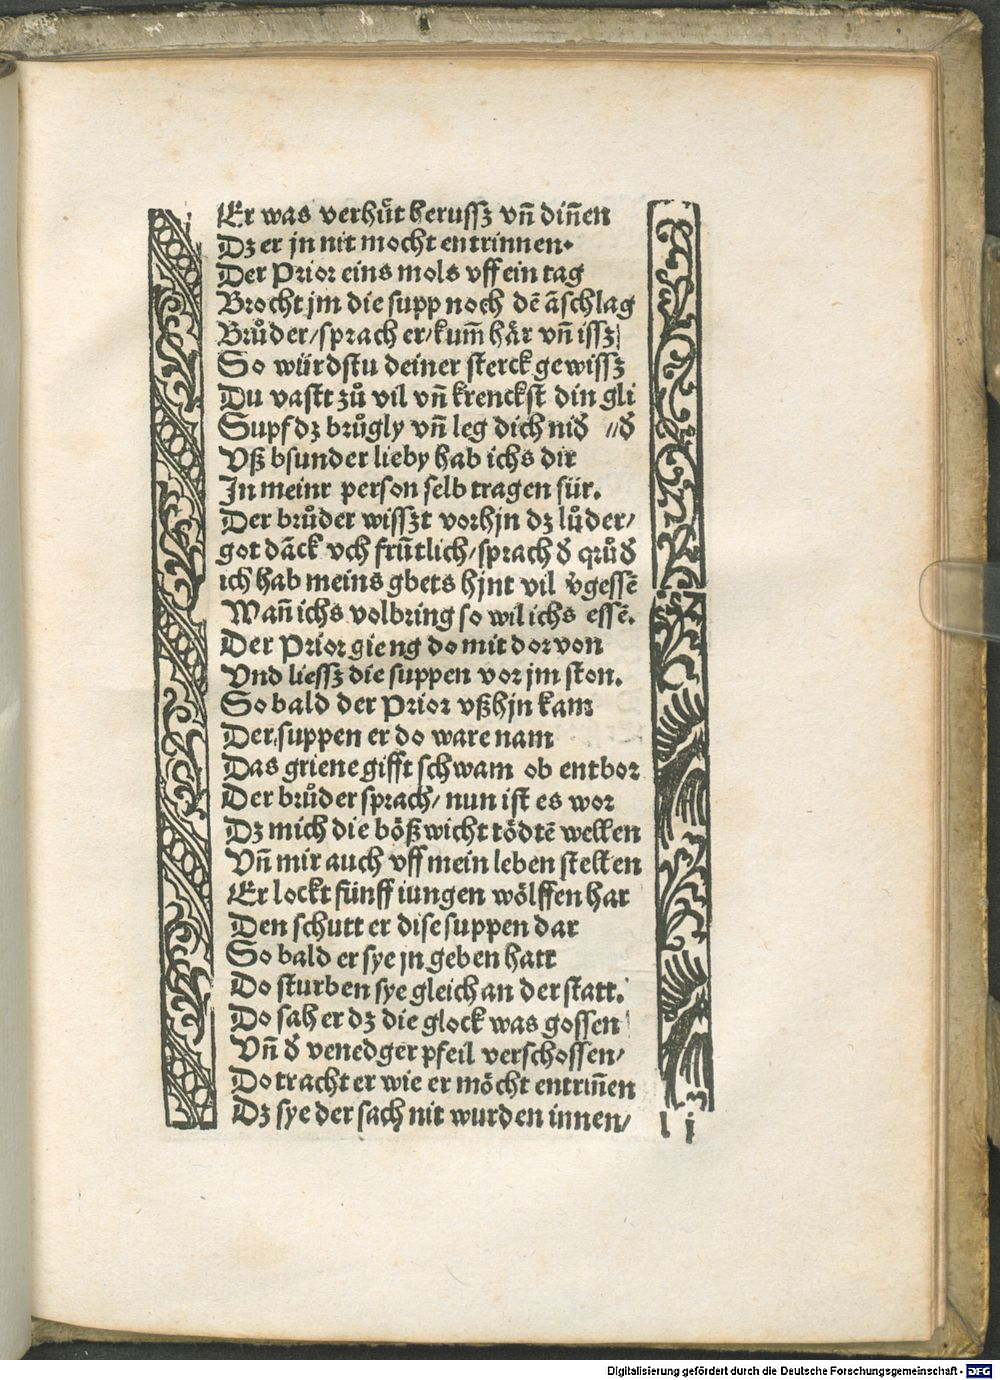 Er was verhuͤt herussz vn̄ din̄en
Dz er jn nit mocht entrinnen.
Der Prior eins mols vff ein tag
Brocht jm die supp noch dē ãschlag
Bruͦder/sprach er/kum̄ haͤr vn̄ issz
So wuͤrdstu deiner sterck gewissz
Du vastt zuͦ vil vn̄ krenckst din gli
Supf dz bruͤgly vn̄ leg dich nid̕ //d̕
Vß bsunder lieby hab ichs dir
In meinr person selb tragen für.
Der bruͦder wisszt vorhjn dz luͦder/
got dãck vch frũtlich/sprach d̕ qruͦd̕
ich hab meins gbets hjnt vil v̕gessē
Wan̄ ichs volbring so wil ichs essē.
Der Prior gieng do mit dor von
Vnd liessz die suppen vor jm ston.
So bald der Prior vßhjn kam
Der suppen er do ware nam
Das griene gifft schwam ob entbor
Der bruͦder sprach/ nun ist es wor
Dz mich die boͤßwicht toͤdtē wellen
Vn̄ mir auch vff mein leben stellen
Er lockt fünff iungen woͤlffen har
Den schutt er dise suppen dar
So bald er sye jn geben hatt
Do sturben sye gleich an der statt.
Do sah er dz die glock was gossen
Vn̄ d̕ venedger pfeil verschossen/
Do tracht er wie er moͤcht entrin̄en
Dz sye der sach nit wurden innen/
i
Digitalisierung gefördert durch die Deutsche Forschungsgemeinschaft - DFG